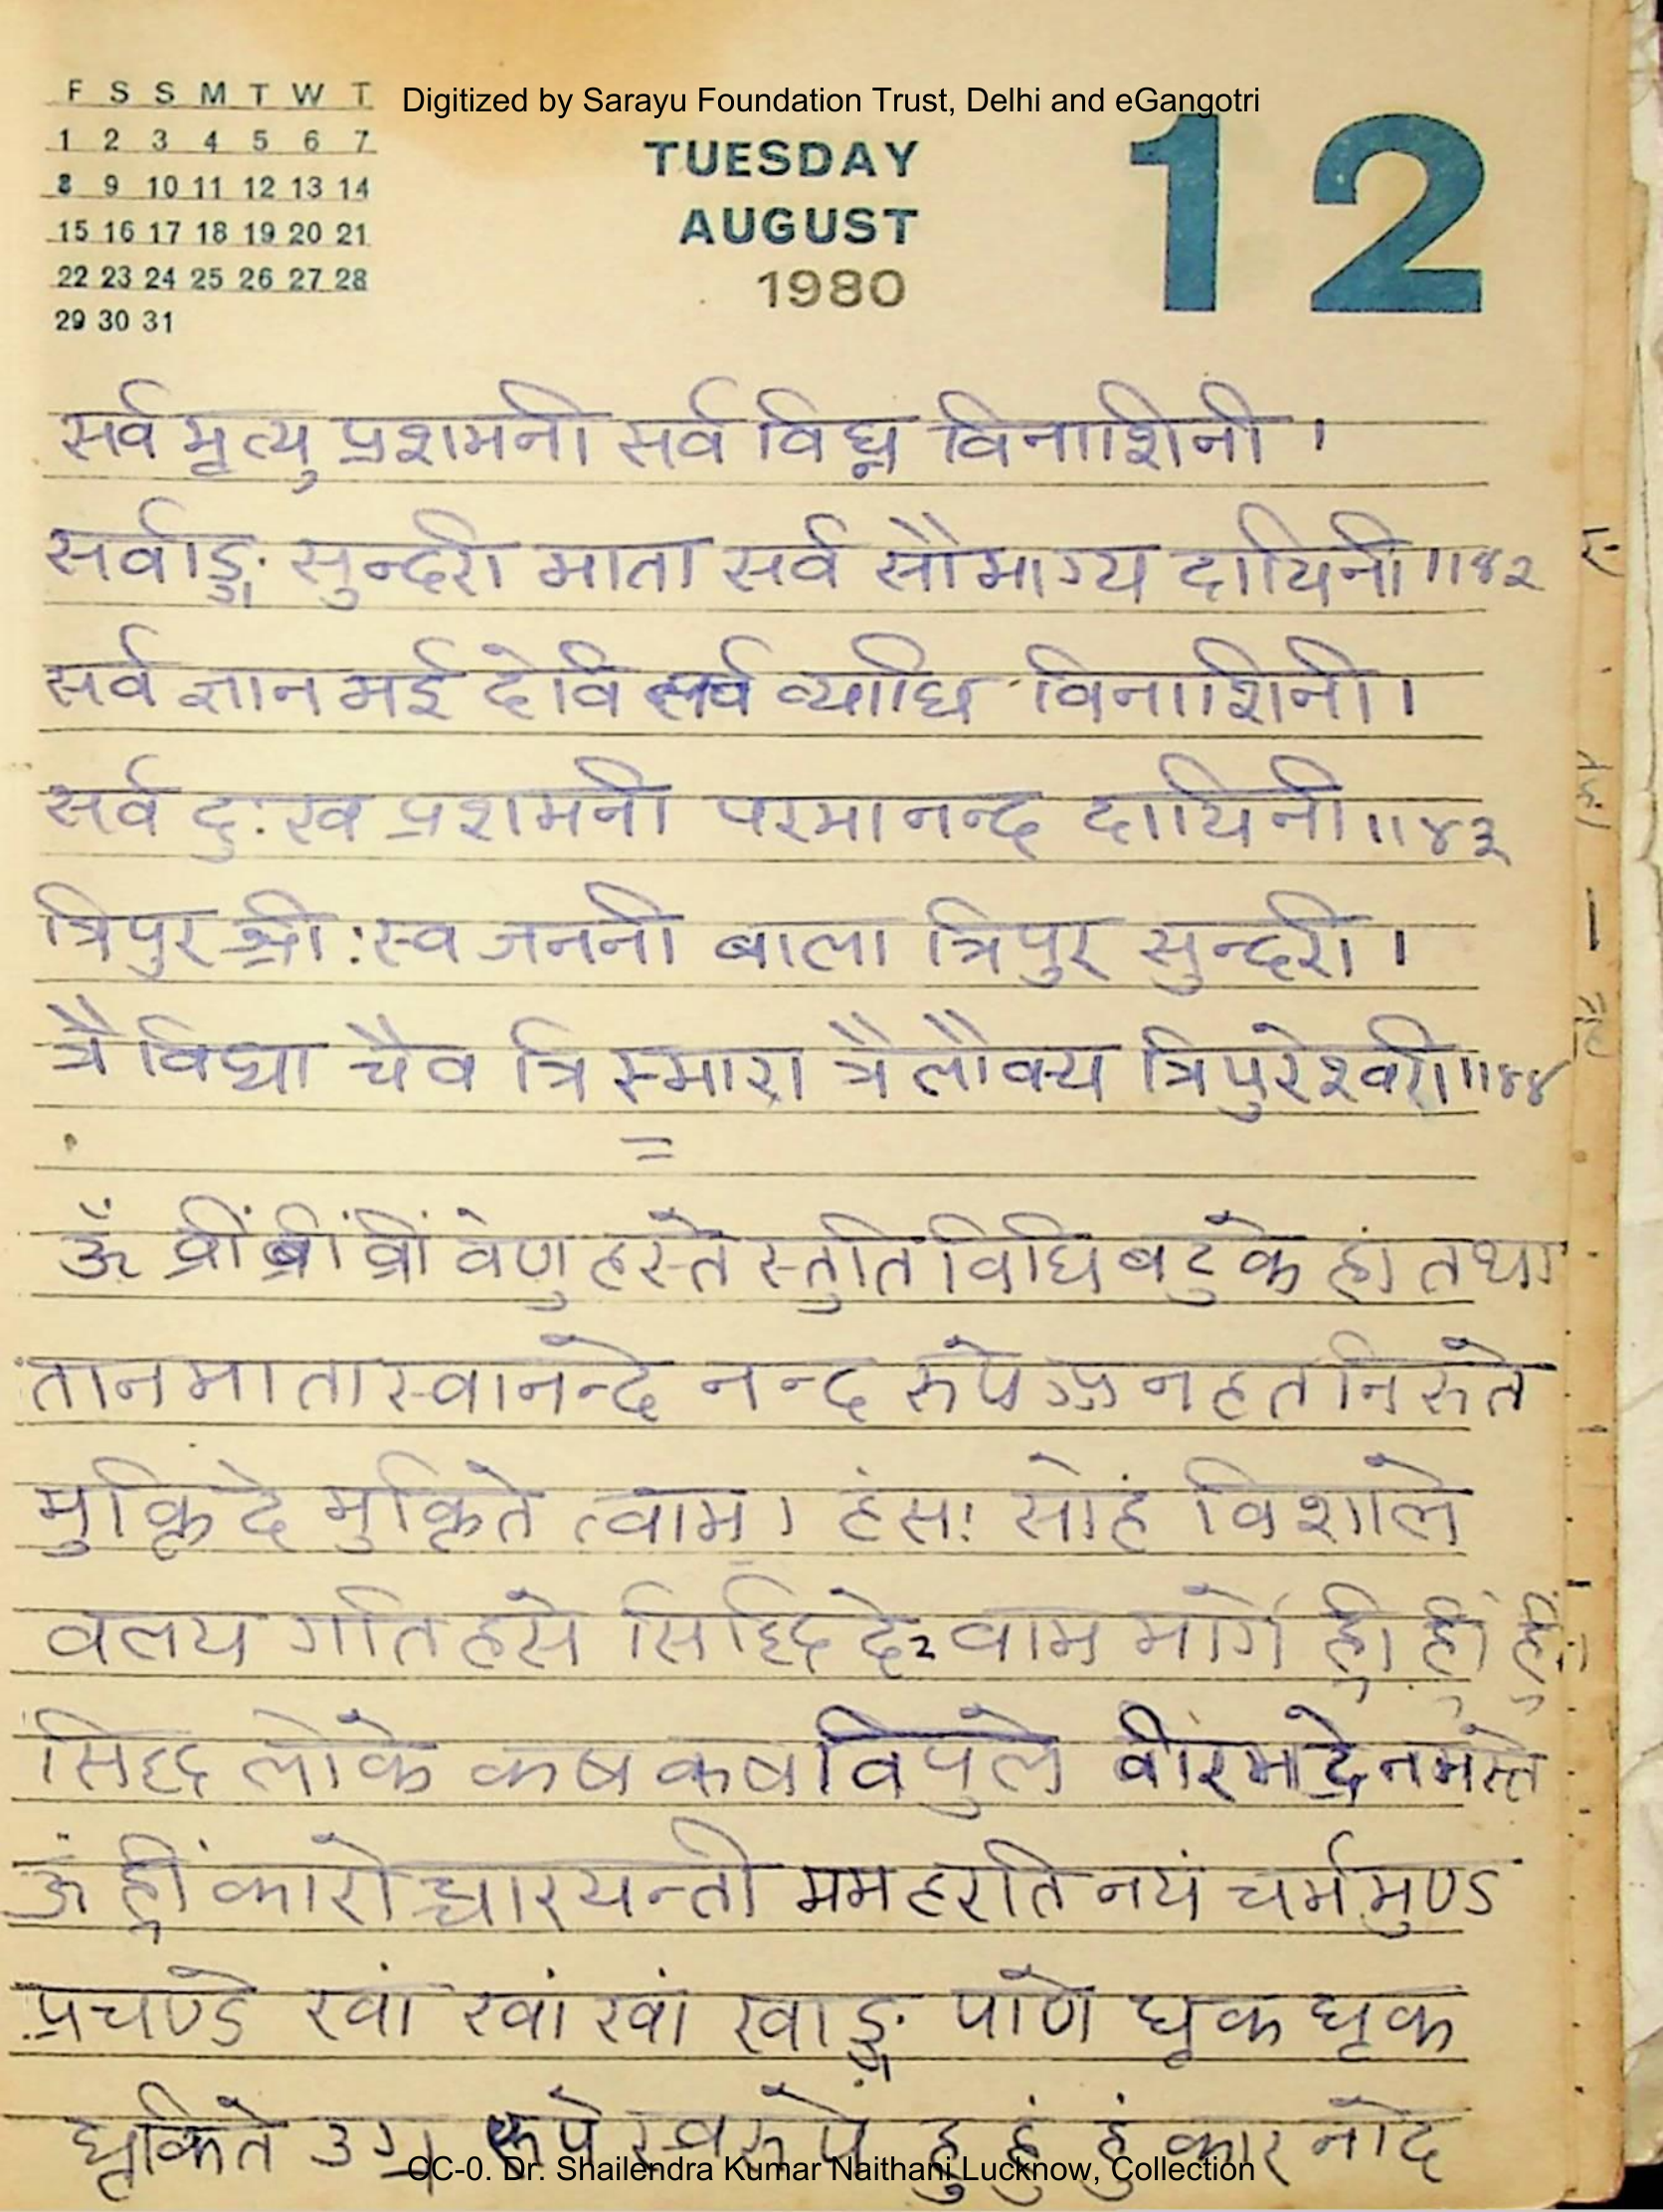 F S S M T W T
Digitized by Sarayu Foundation Trust, Delhi and eGangotri
1 2 3 4 5 6 7
8 9 10 11 12 13 14
15 16 17 18 19 20 21
22 23 24 25 26 27 28
29 30 31
TUESDAY
AUGUST
1980
12
सर्व मृत्यु प्रशमनी सर्व विघ्न विनाशिनी ।
सर्वाङ्ग सुन्दरी माता सर्व सौभाग्य दायिनी ॥४२
सर्व ज्ञान मई देवि सर्व व्याधि विनाशिनी ।
सर्व दुःख प्रशमनी परमानन्द दायिनी ॥४३
त्रिपुर श्री: स्व जननी बाला त्रिपुर सुन्दरी ।
त्रै विद्या चैव त्रि स्मारा त्रैलौक्य त्रिपुरेश्वरी ॥४४
=
ॐ व्रीं व्रीं व्रीं वेणु हस्ते स्तुति विधि बटुके हां तथा
तानमाता स्वानन्दे नन्द रुपे ऽनहत निरुते
मुक्ति दे मुक्तिते त्वाम । हंस: सोहं विशाले
वलय गति हसे सिद्धि दे२ वाम मार्गे ह्रीं ह्रीं ह्रीं
सिद्ध लोके कष कष विपुले वीरभद्रे नमस्ते
ॐ ह्रीं कारोच्चारयन्ती मम हरति नयं चर्म मुण्ड
प्रचण्डे खां खां खां खाङ्ग पाणे घृक घृक
घृकिते उग्र रुपे स्वरुपे हुं हुं हुं कार नादे
CC-0. Dr. Shailendra Kumar Naithani Lucknow, Collection